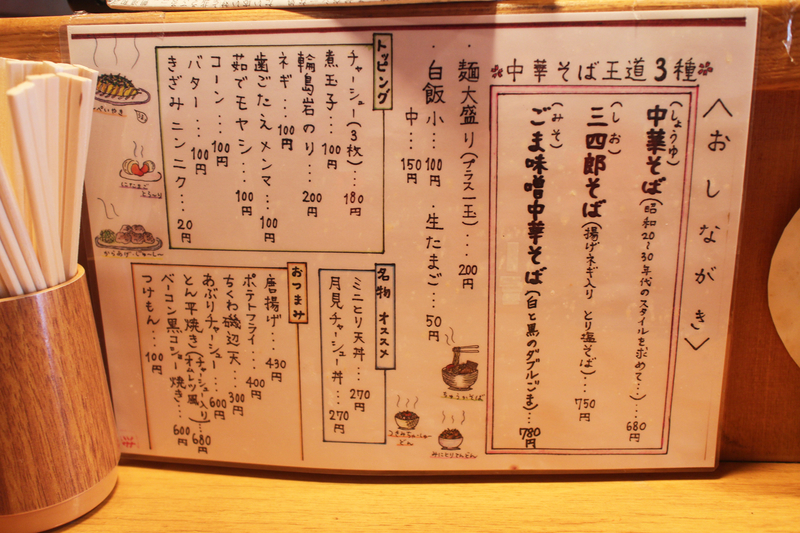 〈おしながき〉
中華そば王道3種
(しょうゆ)
中華そば(昭和20〜30年代のスタイルを求めて…)…680円
(しお)
三四郎そば(揚げネギ入り とり塩そば)…750円
(みそ)
ごま味噌中華そば(白と黒のダブルごま)…780円
・麺大盛り(プラス一玉)…200円
・白飯 小…100円 ・生たまご…50円
中…150円
トッピング
チャーシュー(3枚)…180円
煮玉子…100円
輪島岩のり…200円
ネギ…100円
歯ごたえメンマ…100円
茹でモヤシ…100円
コーン…100円
バター…100円
きざみニンニク…20円
名物 オススメ
ミニとり天丼…270円
月見チャーシュー丼…270円
おつまみ
唐揚げ…430円
ポテトフライ…400円
ちくわ磯辺天…300円
あぶりチャーシュー…600円
とん平焼き(チャーシュー入りオムレツ風)…680円
ベーコン黒コショー焼き…600円
つけもん…100円
ちゅうかそば
みにとりてんどん
にたまご
からあげ